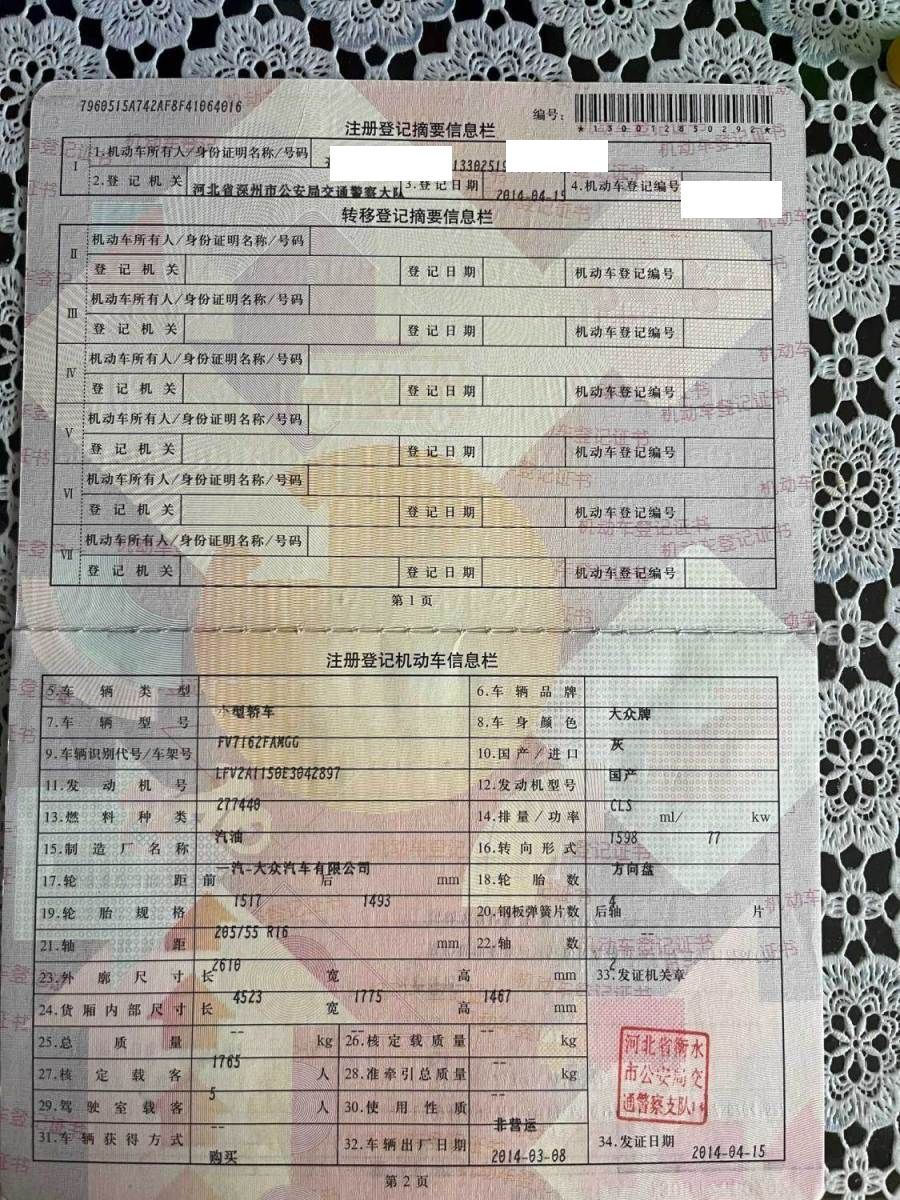 7960515A742AF8F41064016
编号:
*130012850292*
注册登记摘要信息栏
Ⅰ 1.机动车所有人/身份证明名称/号码 1330251
2.登记机关 河北省深州市公安局交通警察大队 3.登记日期 2014-04-15 4.机动车登记编号
转移登记摘要信息栏
Ⅱ 机动车所有人/身份证明名称/号码
登记机关 登记日期 机动车登记编号
Ⅲ 机动车所有人/身份证明名称/号码
登记机关 登记日期 机动车登记编号
Ⅳ 机动车所有人/身份证明名称/号码
登记机关 登记日期 机动车登记编号
Ⅴ 机动车所有人/身份证明名称/号码
登记机关 登记日期 机动车登记编号
Ⅵ 机动车所有人/身份证明名称/号码
登记机关 登记日期 机动车登记编号
Ⅶ 机动车所有人/身份证明名称/号码
登记机关 登记日期 机动车登记编号
第1页
注册登记机动车信息栏
5.车辆类型 小型轿车 6.车辆品牌 大众牌
7.车辆型号 FV7162FAMGG 8.车身颜色 灰
9.车辆识别代号/车架号 LFV2A1150E3042897 10.国产/进口 国产
11.发动机号 277440 12.发动机型号 CLS
13.燃料种类 汽油 14.排量/功率 1598 ml/ 77 kw
15.制造厂名称 一汽-大众汽车有限公司 16.转向形式 方向盘
17.轮距 前 1517 后 1493 mm 18.轮胎数 4
19.轮胎规格 205/55 R16 20.钢板弹簧片数 后轴 -- 片
21.轴距 2610 mm 22.轴数 2
23.外廓尺寸 长 4523 宽 1775 高 1467 mm 33.发证机关章
24.货厢内部尺寸 长 -- 宽 -- 高 -- mm
25.总质量 1765 kg 26.核定载质量 -- kg
27.核定载客 5 人 28.准牵引总质量 -- kg
29.驾驶室载客 -- 人 30.使用性质 非营运
31.车辆获得方式 购买 32.车辆出厂日期 2014-03-08 34.发证日期 2014-04-15
河北省衡水
市公安局交
通警察支队
第2页